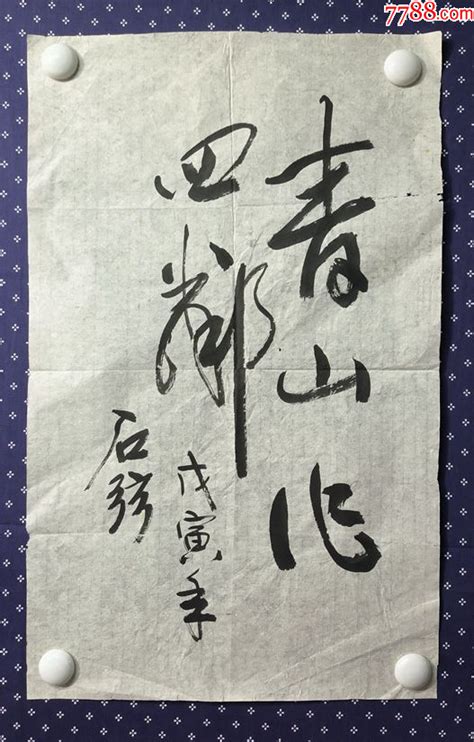 7788.com
青山作
四鄰
戊寅年
石弦